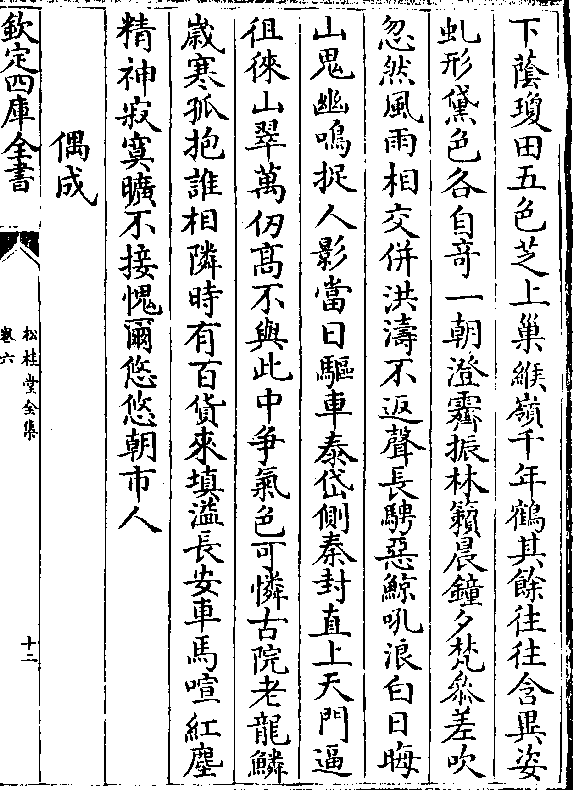 下蔭瓊田五色芝上巢緱嶺千年鶴其餘往往含異姿
虬形黛色各自竒一朝澄霽振林籟晨鐘夕梵叅差吹
忽然風雨相交併洪濤不返聲長騁惡鯨吼浪白日晦
山鬼幽鳴捉人影當日驅車泰岱側秦封直上天門逼
徂徠山翠萬仞髙不與此中争氣色可憐古院老龍鱗
歲寒孤抱誰相隣時有百貨來填溢長安車馬喧紅塵
精神寂寞曠不接愧爾悠悠朝市人
偶成
欽定四庫全書
松桂堂全集
卷六
十二